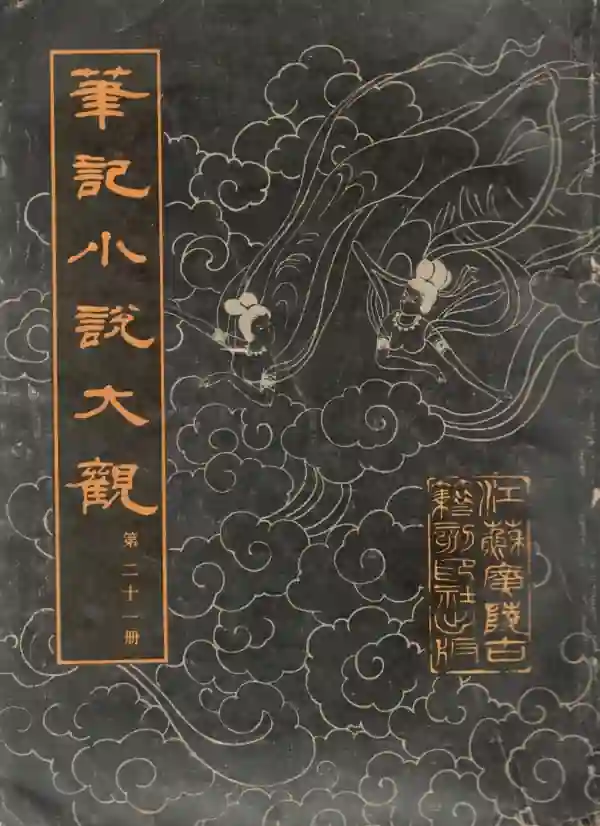 筆記小說大觀
第二十一册
江蘇廣陵古
籍刻印社出版